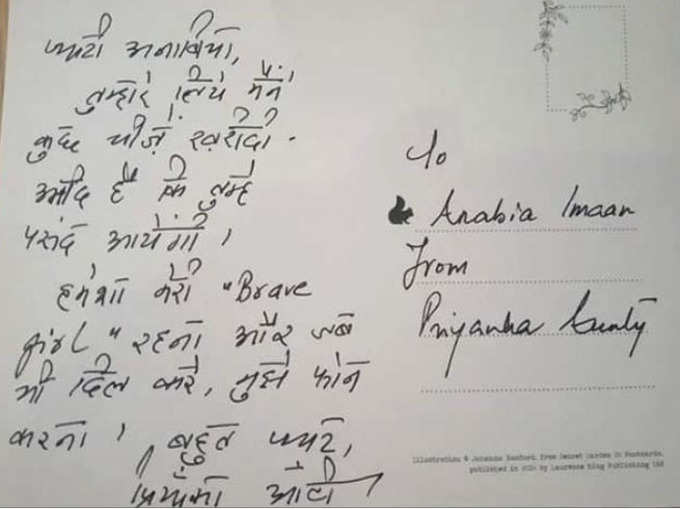 प्यारी अनाबिया,
तुम्हारे लिये मैंने
कुछ चीज़ें ख़रीदी.
उम्मीद है कि तुम्हे
पसंद आयेंगी।
हमेशा मेरी "Brave
girl" रहना और जब
भी दिल करे, मुझे फोन
करना। बहुत प्यार,
प्रियंका आंटी
To
Anabia Imaan
From
Priyanka Aunty
Illustration © Johanna Basford, from Secret Garden 20 Postcards,
published in 2014 by Laurence King Publishing Ltd